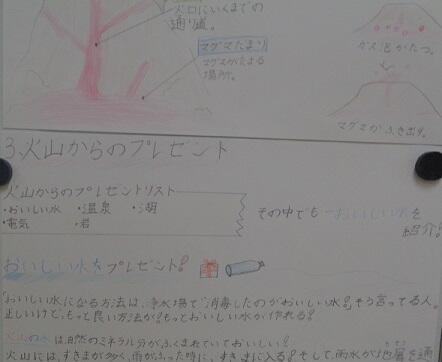 火口にいくまでの
通り道。
マグマだまり
マグマがたまる
場所。
ガス泡がたつ。
マグマがふき出す。
3.火山からのプレゼント
火山からのプレゼントリスト
・おいしい水 ・温泉 ・湖
・電気 ・岩
その中でも…おいしい水を
紹介!
おいしい水をプレゼント!
「おいしい水になる方法は、浄水場で消毒したのがおいしい水!」そう言ってる人。
正しいけど、もっと良い方法が!もっとおいしい水が作れる!
火山の水は、自然のミネラル分がふくまれていておいしい!
火山には、すきまが多く、雨がふった時に、すきまに入る!そして、雨水が地層を通